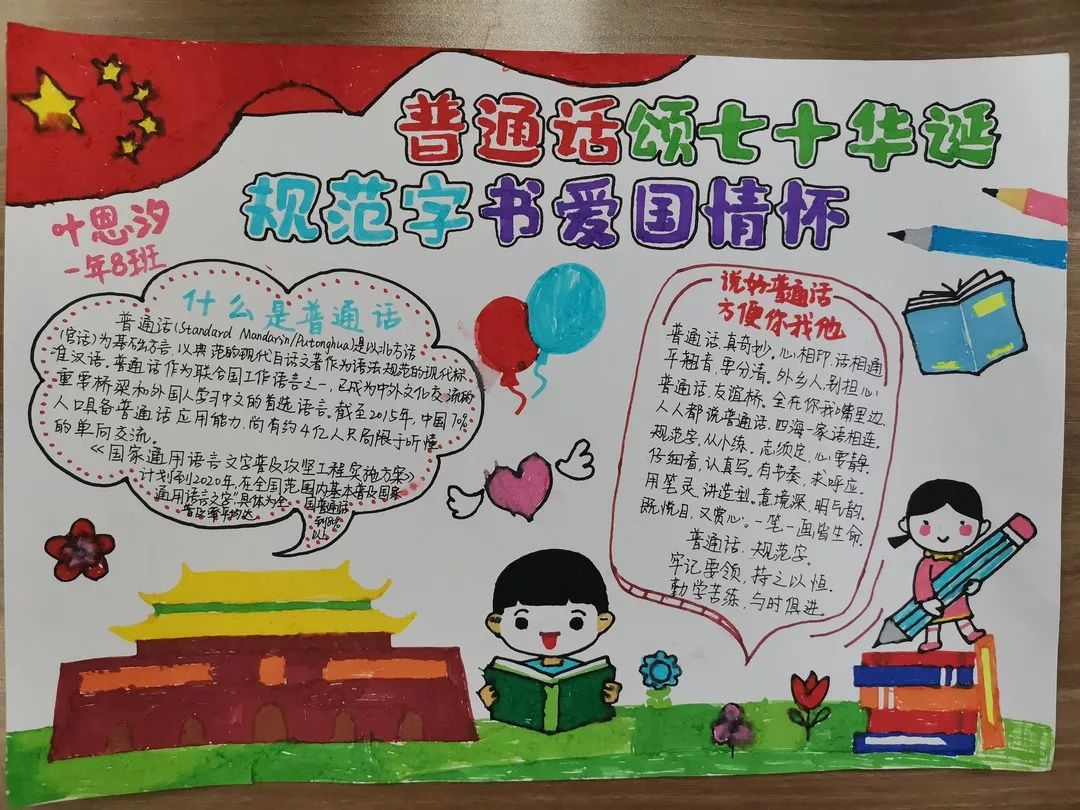 普通话颂七十华诞
规范字书爱国情怀
叶恩汐
一年8班
什么是普通话
普通话(Standard Mandarin/Putonghua)是以北方话
(官话)为基础方言,以典范的现代白话文著作为语法规范的现代标
准汉语。普通话作为联合国工作语言之一,已成为中外文化交流的
重要桥梁和外国人学习中文的首选语言。截至2015年,中国70%
人口具备普通话应用能力,尚有约4亿人只局限于听懂
的单向交流。
《国家通用语言文字普及攻坚工程实施方案》
计划到2020年,在全国范围内基本普及国家
通用语言文字"具体为全国普通话
说好普通话
方便你我他
普通话,真奇妙,心相印,话相通
平翘音,要分清。外乡人,别担心
普通话,友谊桥。全在你我嘴里边.
人人都说普通话,四海一家语相连.
规范字,从小练。志须定,心要静.
仔细看,认真写。有节奏,求呼应.
用笔灵,讲造型。意境深,明与韵.
既悦目,又赏心。一笔一画皆生命.
普通话.规范字.
牢记要领,持之以恒.
勤学苦练,与时俱进.